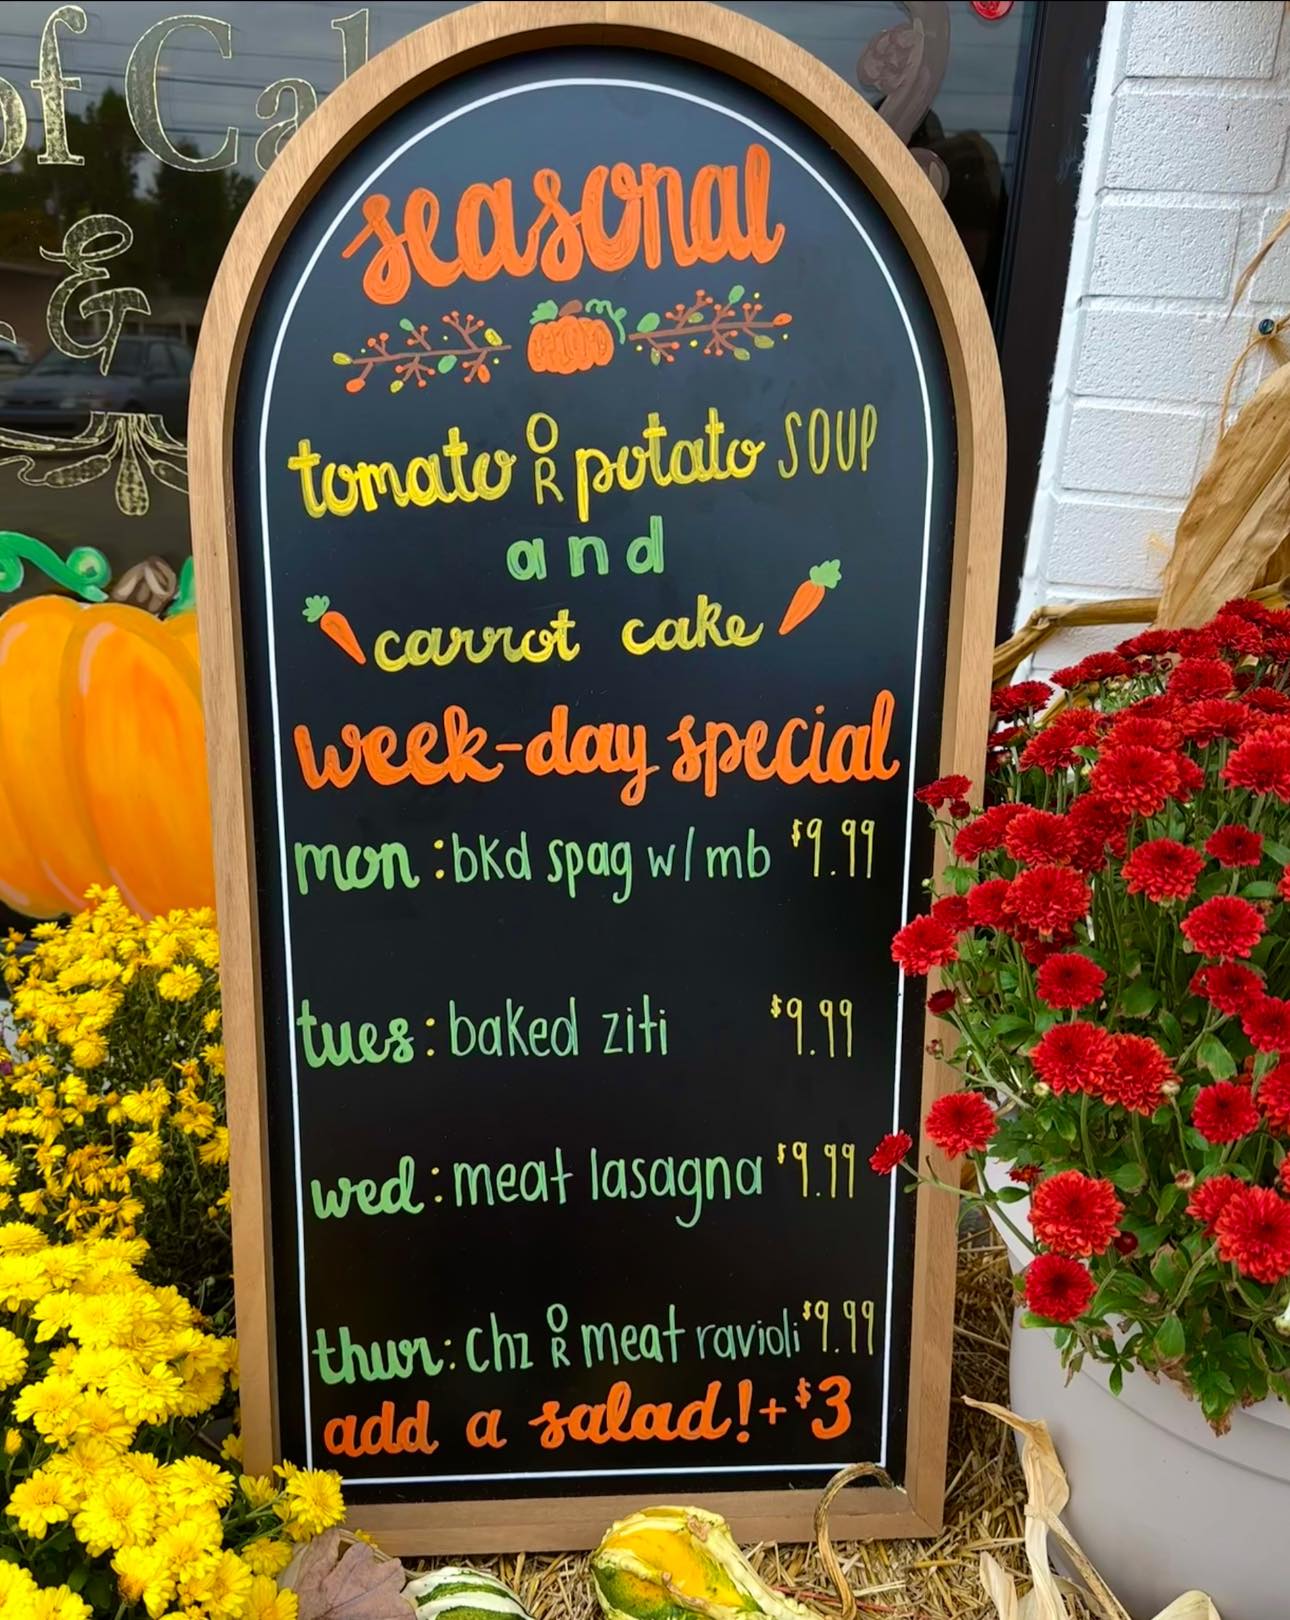 of Cal
&
seasonal
tomato OR potato SOUP
and
carrot cake
week-day special
mon : bkd spag w/ mb $9.99
tues : baked ziti $9.99
wed : meat lasagna $9.99
thur : chz OR meat ravioli $9.99
add a salad! + $3